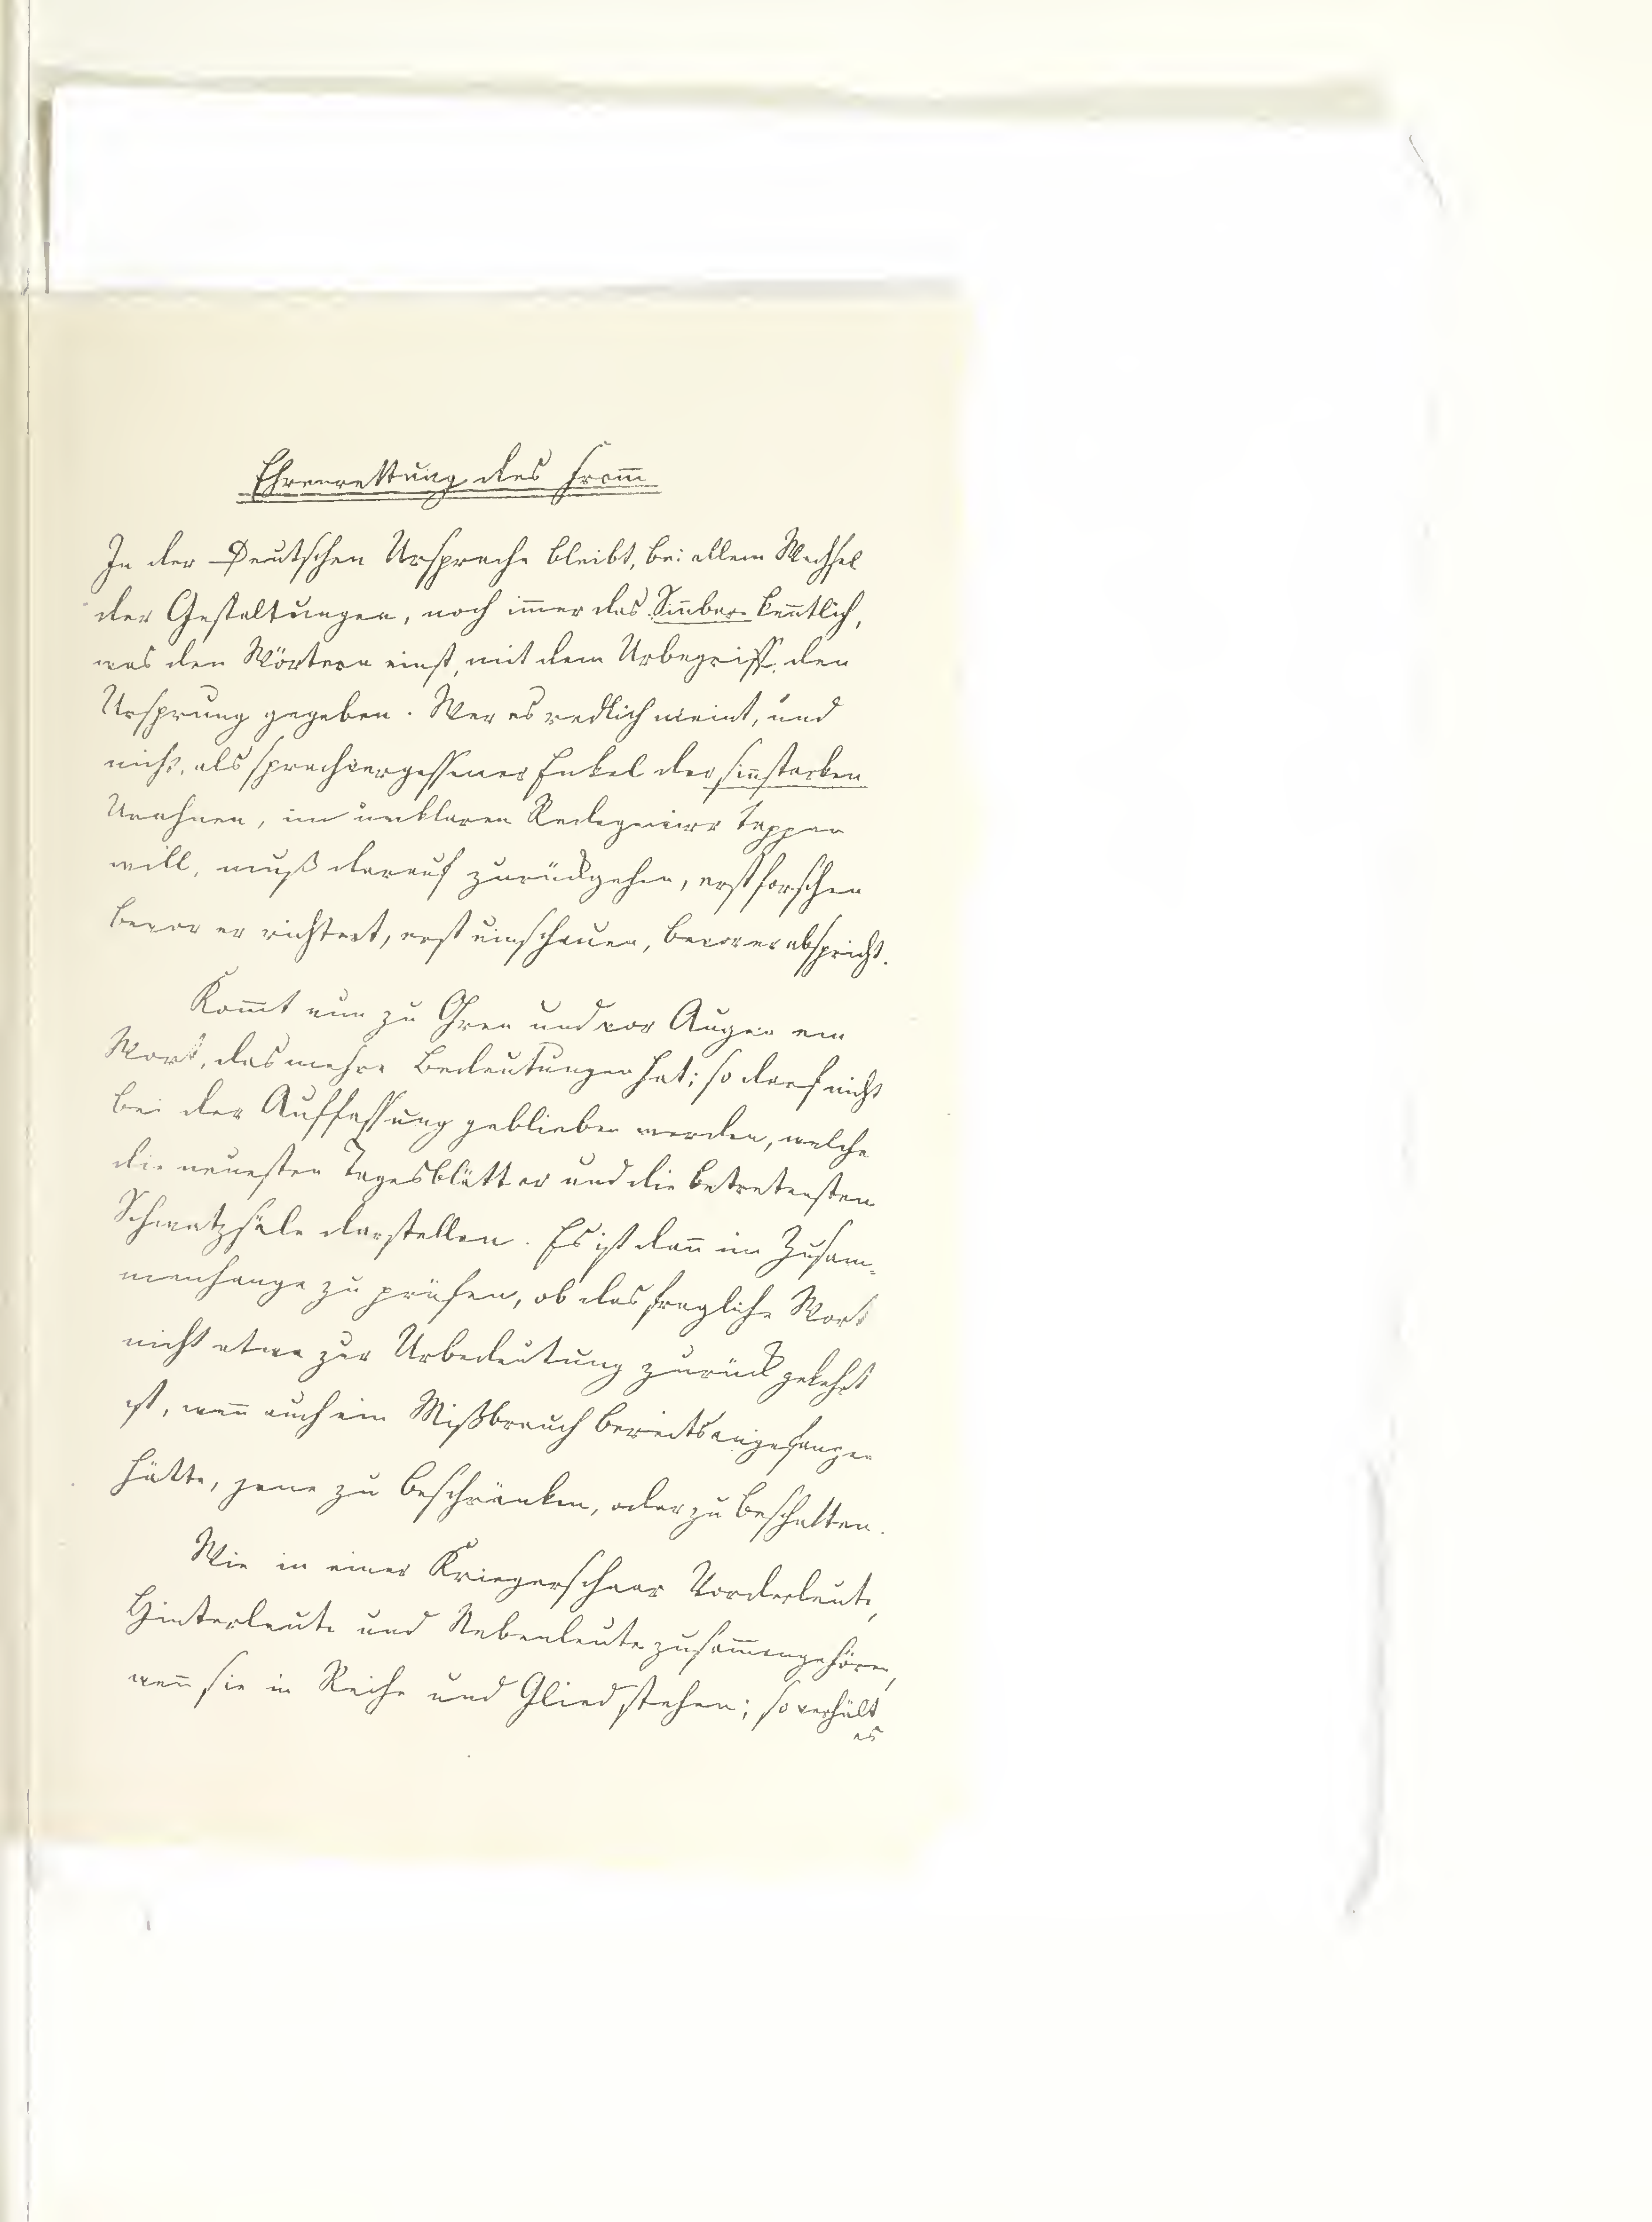 Ehrenrettung des From̅
In der Deutschen Ursprache bleibt, bei allem Wechsel
der Gestaltungen, noch im̅er das Sin̅bare ken̅tlich,
was den Wörtern einst, mit dem Urbegriff, den
Ursprung gegeben. Wer es redlich meint, und
nicht, als sprachvergessener Enkel der sin̅starken
Urahnen, im unklaren Redegewirr tappen
will, muß darauf zurückgehen, erst forschen
bevor er richtert, erst umschauen, bevor er abspricht.
Kom̅t nun zu Ohren und vor Augen ein
Wort, das mehre Bedeutungen hat; so darf nicht
bei der Auffassung geblieben werden, welche
die neuesten Tagesblätter und die betretensten
Schwatzsäle darstellen. Es ist dan̅ im Zusam-
menhange zu prüfen, ob das fragliche Wort
nicht etwa zur Urbedeutung zurück gekehrt
ist, wen̅ auch ein Mißbrauch bereits angefangen
hätte, jene zu beschränken, oder zu beschatten.
Wie in einer Kriegerschaar Vorderleute,
Hinterleute und Nebenleute zusam̅engehören,
wen̅ sie in Reihe und Glied stehen; so verhält
es